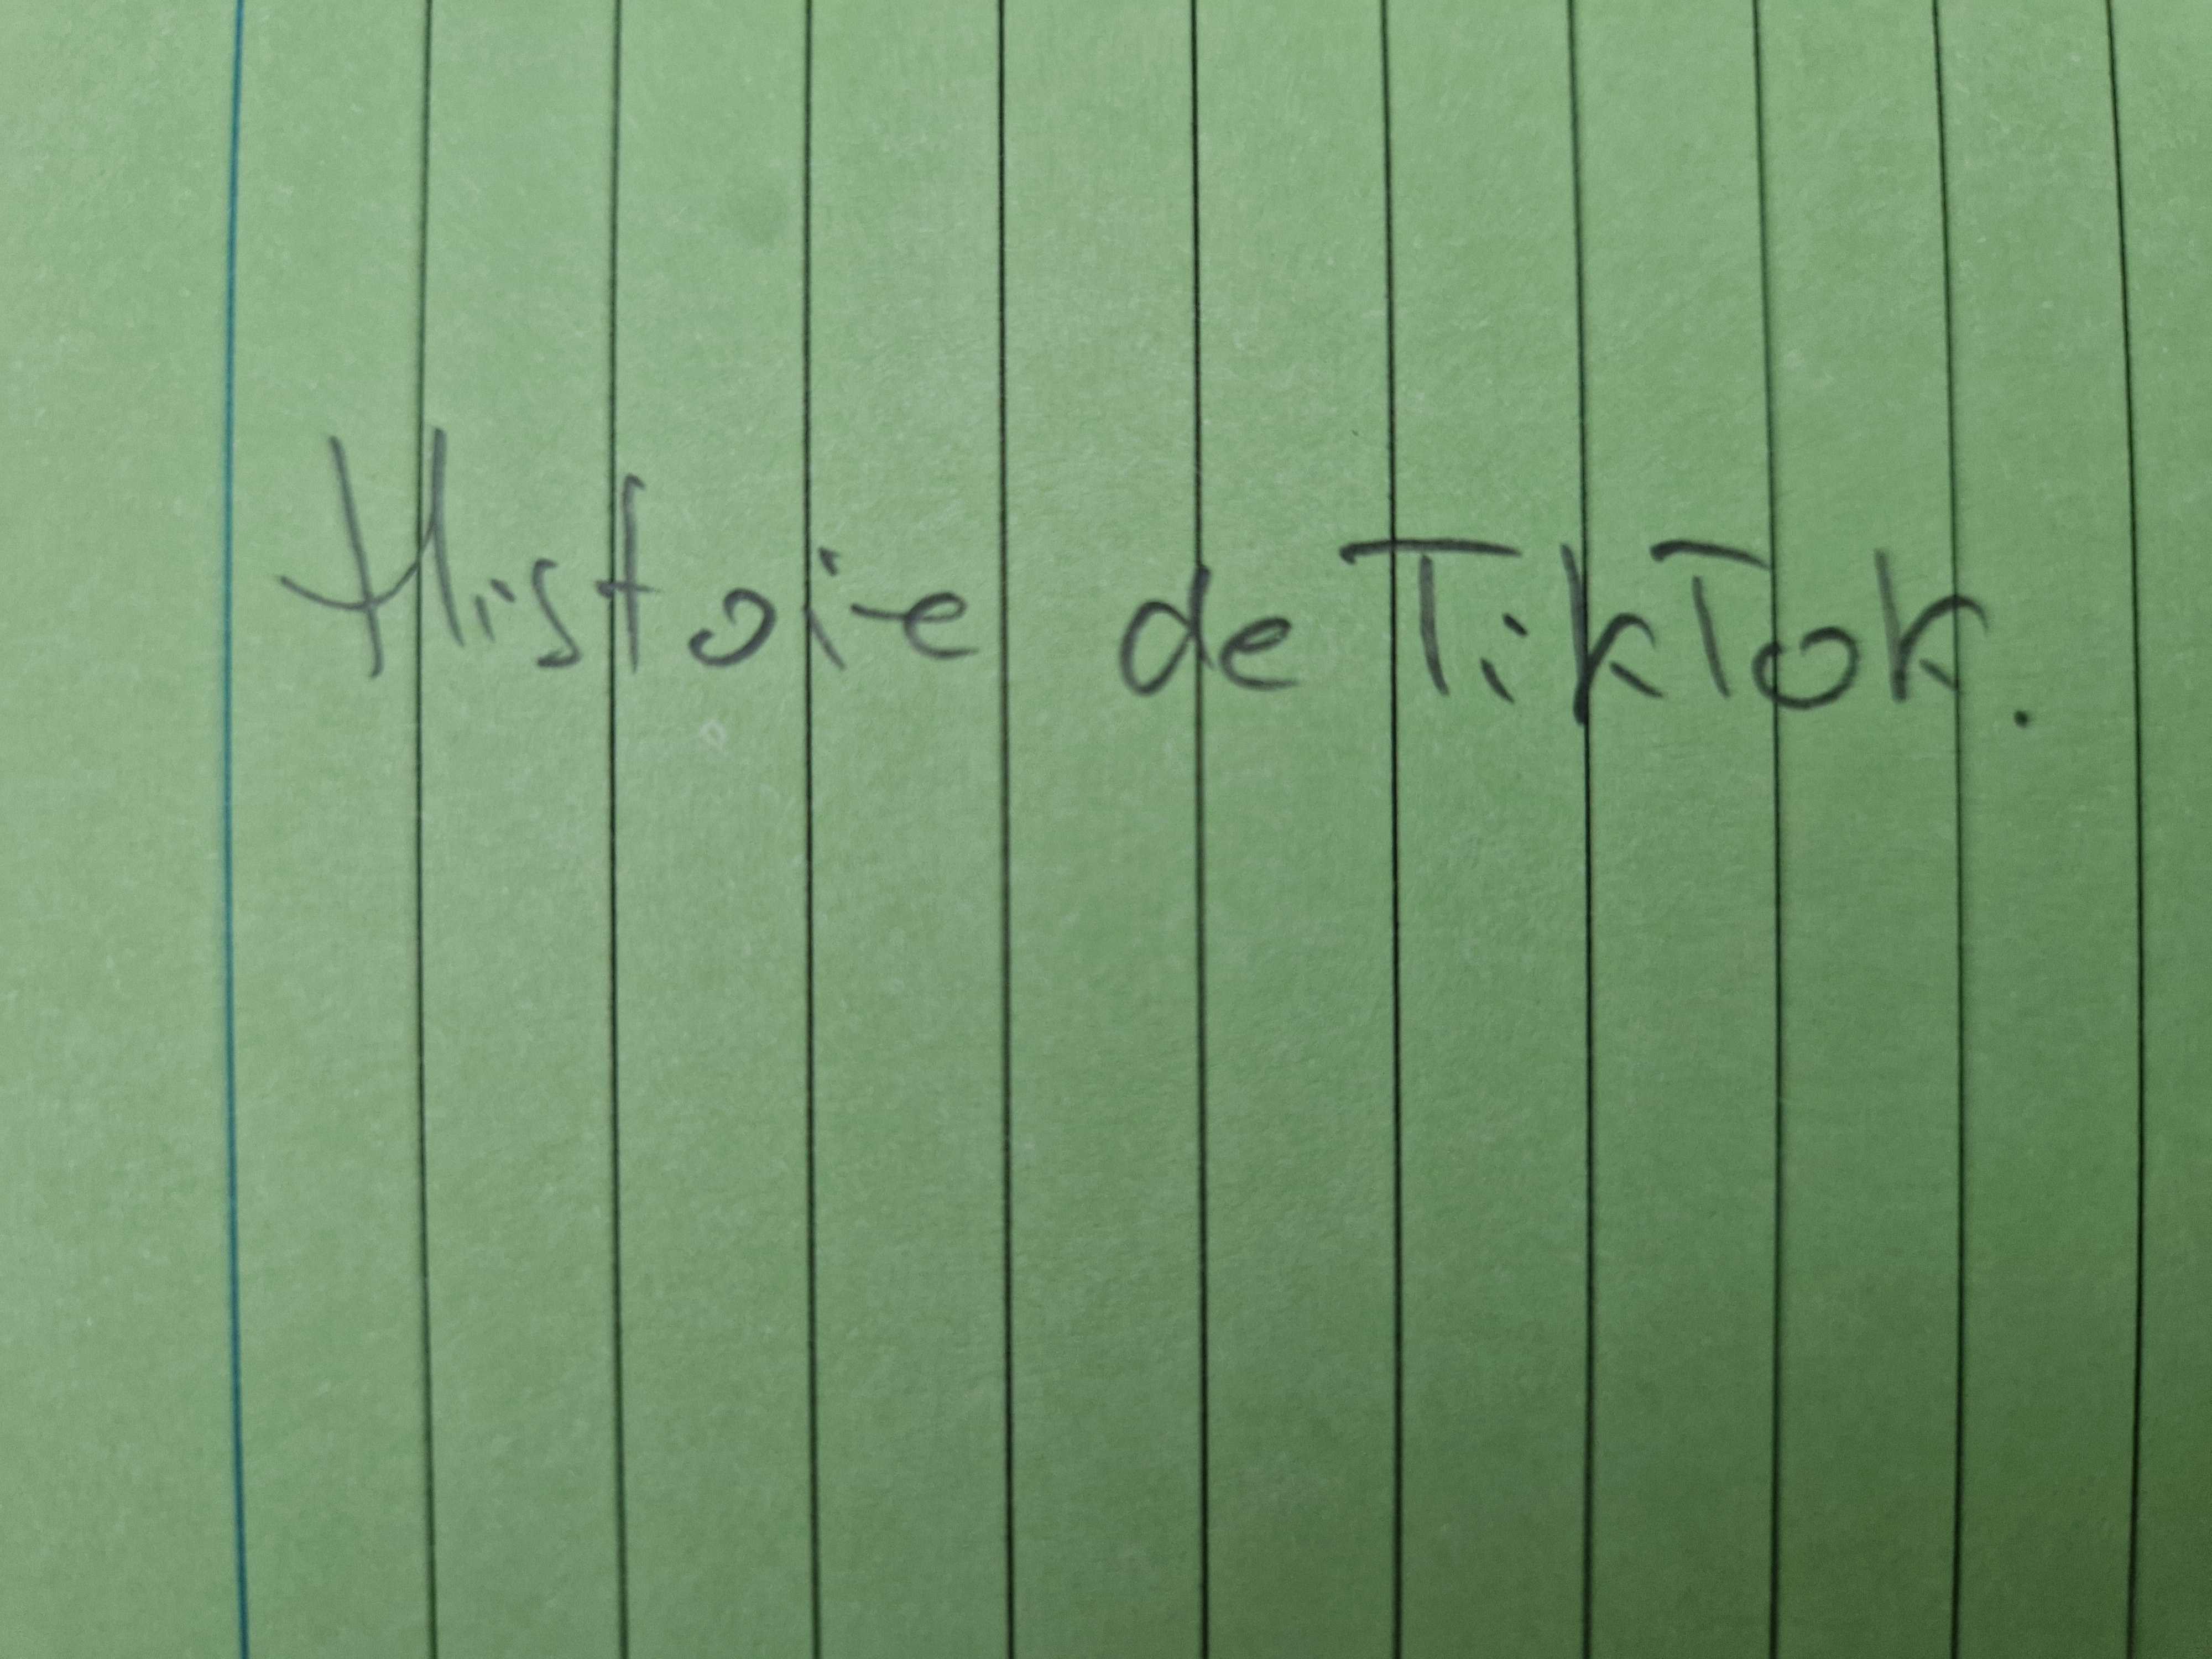 Histoie de TikTok.